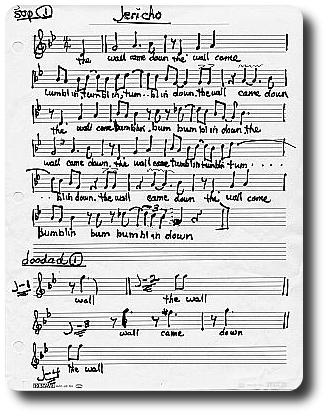 Sop 1 Jericho
the wall came down the wall came
tumblin, tumblin, tum..blin down. the wall came down
the wall came bumblin, bum bumblin down, the
wall came down, the wall came tumblin tumblin tum....
..blin down. the wall came down the wall come
Bumblin bum bumblin down
doodad 1
J-1 wall J-2 the wall
J-3 wall came down
J-4 the wall